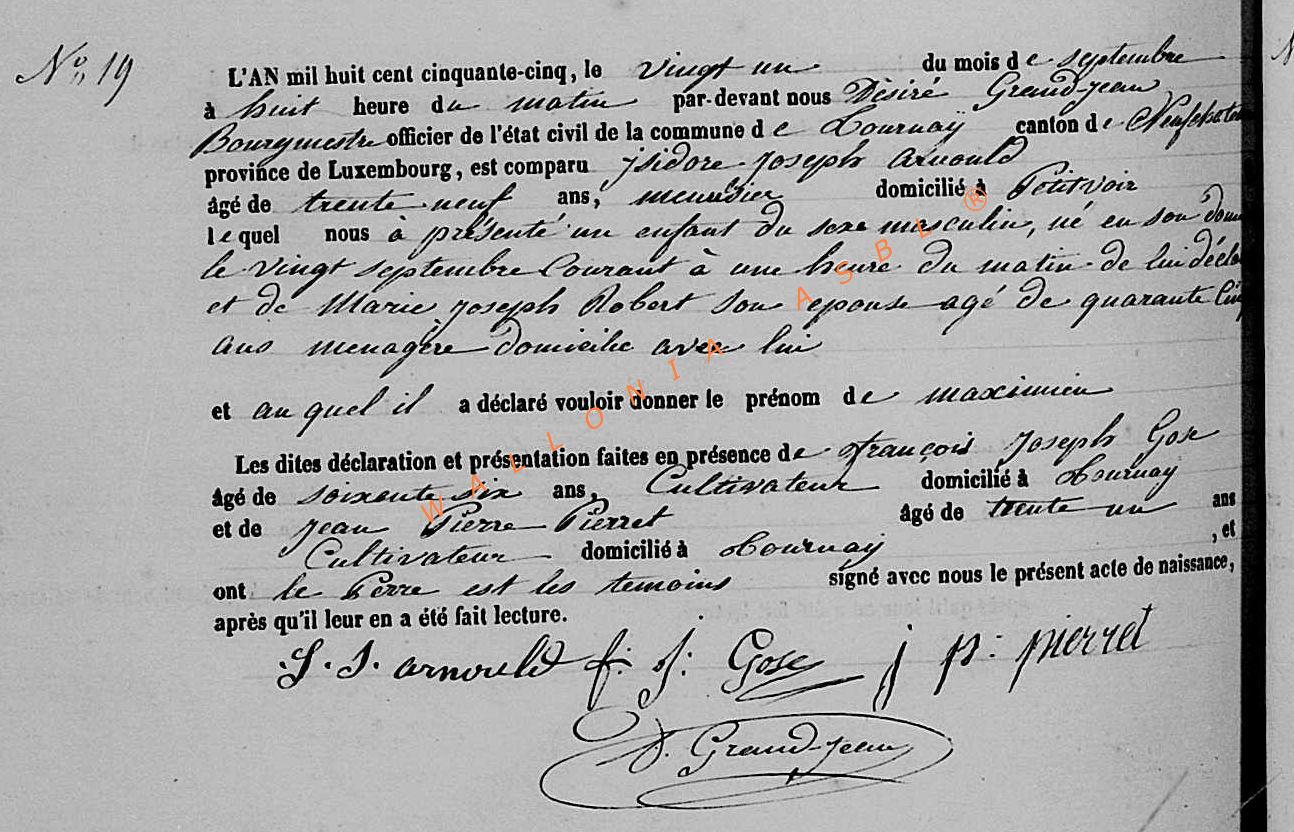 No 19
L'AN mil huit cent cinquante-cinq, le vingt un du mois de septembre
à huit heure du matin par-devant nous Désiré Grand-jean
Bourgmestre officier de l'état civil de la commune de Tournaÿ canton de Neufchateau
province de Luxembourg, est comparu isidore joseph arnould
âgé de trente neuf ans, meunier domicilié à Petitvoir
lequel nous à présenté un enfant du sexe masculin, né en son dom
le vingt septembre Courant à une heure du matin de lui décla
et de Marie joseph Robert son epouse agé de quarante Cinq
ans menagère domicilie avec lui
et au quel il a déclaré vouloir donner le prénom de maximien
Les dites déclaration et présentation faites en présence de françois joseph Gose
âgé de soixente six ans, Cultivateur domicilié à Tournay
et de jean Pierre Pierret âgé de trente un ans
Cultivateur domicilié à Tournaÿ , et
ont le Perre est les temoins signé avec nous le présent acte de naissance,
après qu'il leur en a été fait lecture.
J. J. arnould f. j. Gose j p. pierret
D. Grand-jean
WALLONIA ASBL ®